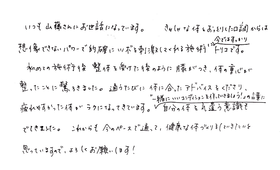 いつも山藤さんにお世話になっています。 きゃしゃな体とおっとりした口調からは
想像できないパワーで的確にツボを刺激してくれる施術に
今ではすっかり
トリコです。
私のこの施術後 整体を受けた後のように 腰がつき、体の重心が
整ったことに驚きました。 通うたびに体に合ったアドバイスをくださり、
疲れやすかった体がラクになってきています。
"一緒にいいコンディションを作っていきましょう"の言葉に
自分の体を見直す意識も
でてきました。 これからも今のペースで通って、健康な体づくりをしていきたいと
思っていますので、よろしくお願いします！